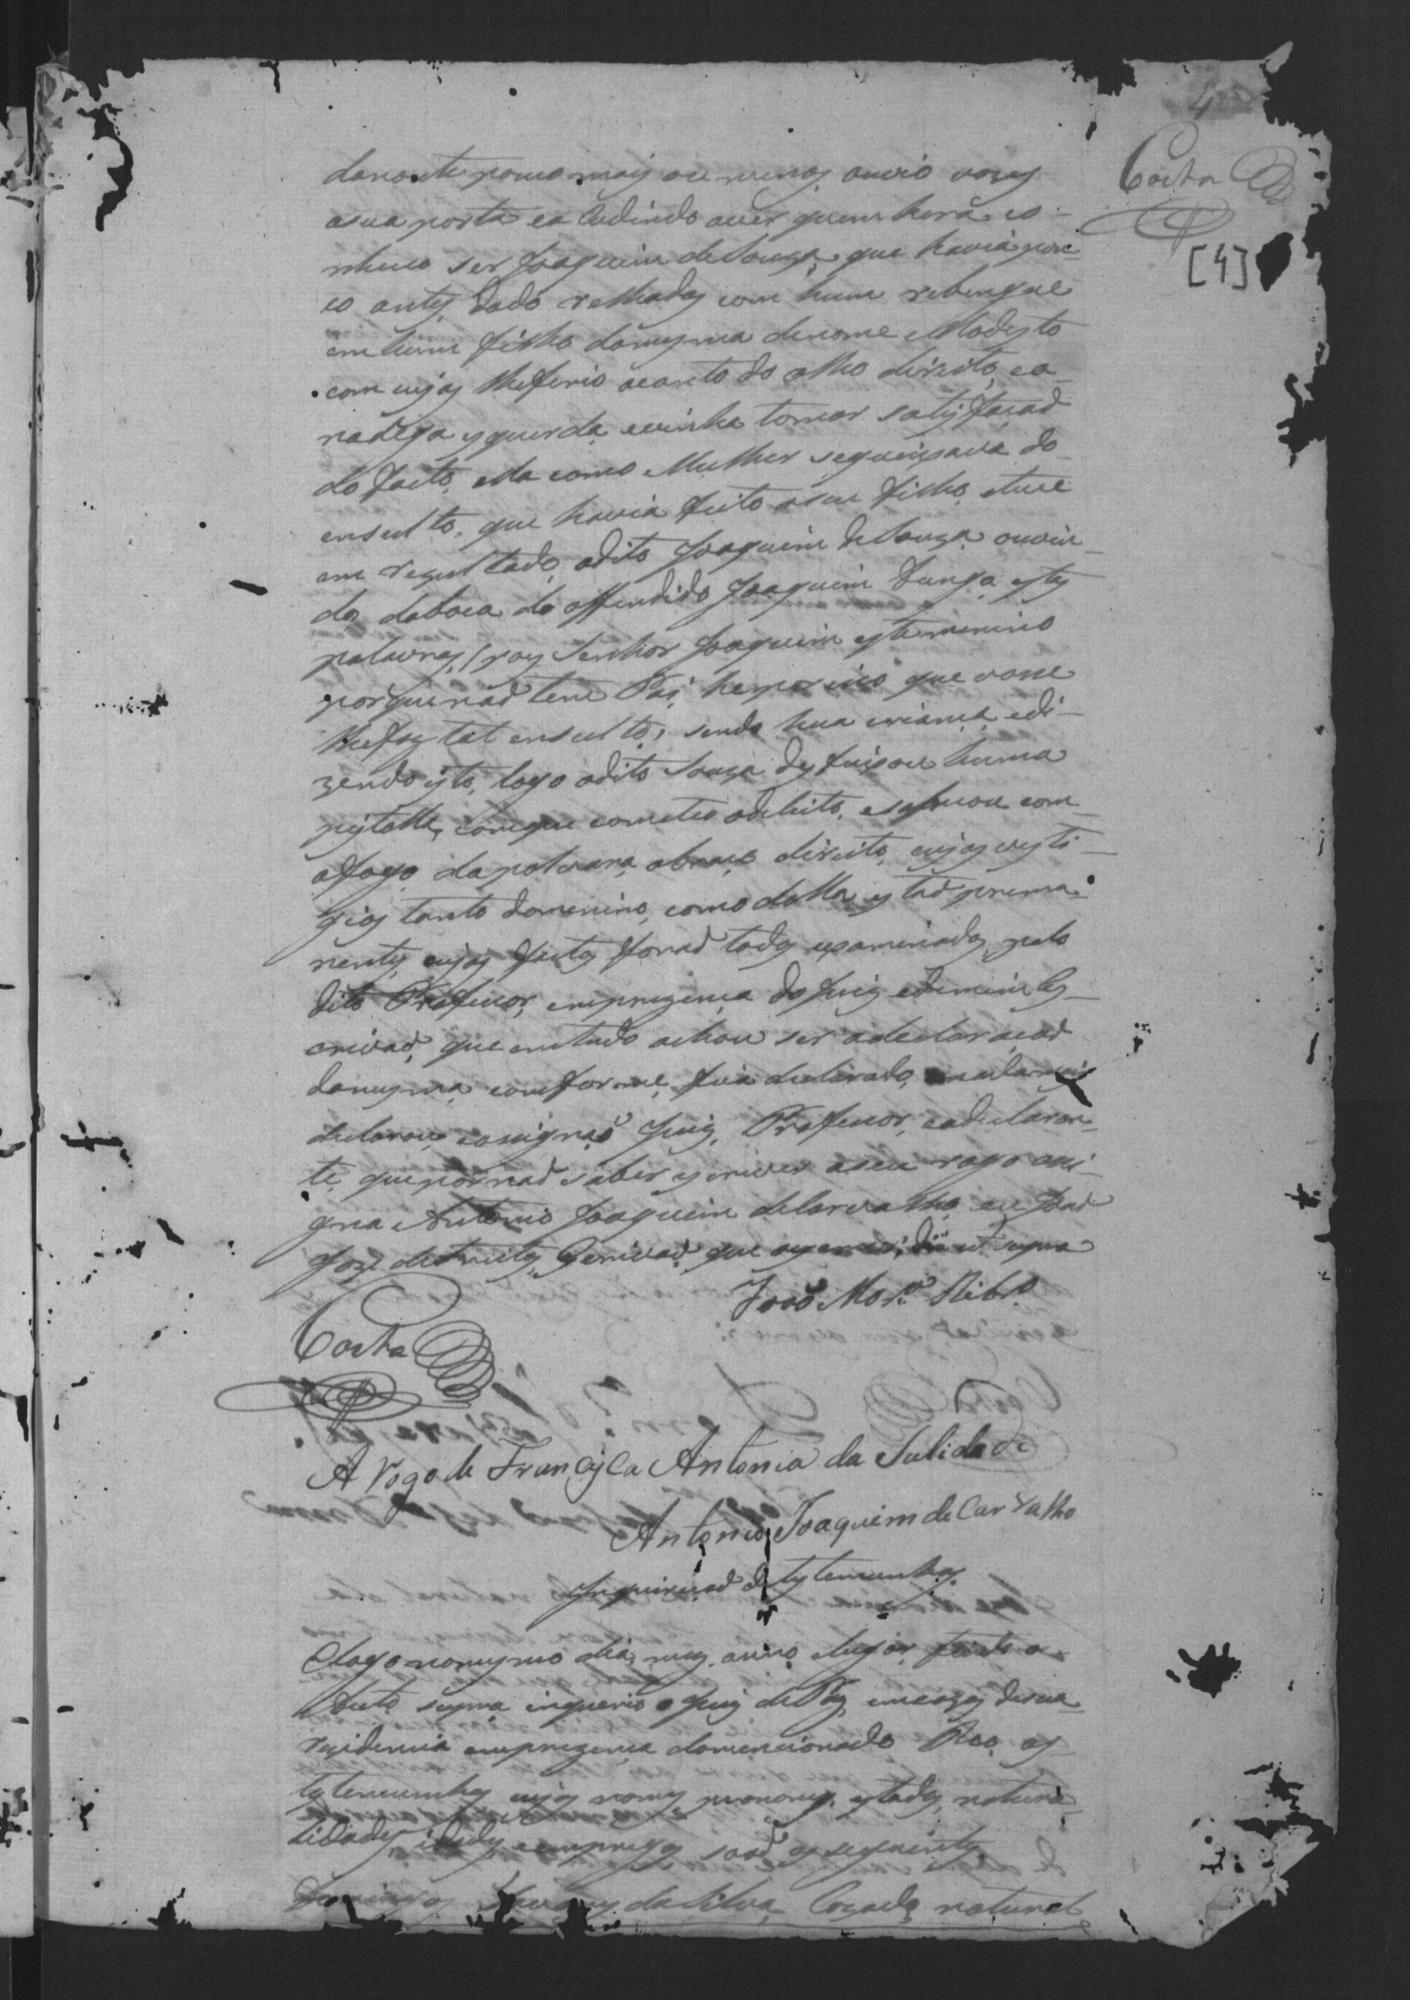 4
Costa
[4]
danoite pouco mais ou menos, ouvio vozes
asua porta ea Codindo aver quem hera co-
nheceo ser Joaquim de Souza, que havia pou-
co antes dado relhadas com hum rebenque
em hum filho damesma denome Modesto
com cujas lheferio ocanto do olho direito, ea
nadega esquerda, evinha tomar satisfacaõ
do facto, ella como Mulher sequeixava do
ensulto, que havia feito aseu filho, eteve
em resultado, odito Joaquim de Souza ouvin-
do, daboca do offendido Joaquim estas
palavras, Senhor Joaquim este menino
porque naõ tem Pai, heporisso que vosse
lhefas tal ensulto, sendo hua crianca, edi-
zendo isto, logo odito Souza desfeixou huma
pistolla, comque cometeo odelicto, com
ofogo dapolvara obraço direito, cujos vesti-
gios tanto domenino, como della estaõ prema-
nentes, cujos factos foraõ todos examinados pelo
dito Professor, empresença do Juiz edemim Es-
crivaõ, que emtudo achou ser adeclaraçaõ
damesma comforme fica declarado, enadamais
declarou, easignaõ Juiz, Professor, eadeclaran-
te, quepornaõ saber escrever aseu rogo asi-
gna Antonio Joaquim deCarvalho, eu Joaõ
Joze Escrivaõ, que oescrevi, supra
Joaõ Mor.ª Ribr.º
Costa
A rogo de Francisca Antonia da Sulidade
Antonio Joaquim de Carvalho
Inquiriçaõ de testemunhas
Elogo nomesmo dia, mes, anno, elugar, feito o
Auto supra inquerio o Juiz dePaz, emcazas desua
rezidencia empresença domencionado Reo, as
testemunhas cujos nomes pronomes, estados, natura-
lidades, idades, eempregos, saõ os seguintes,
Domingos da Silva Cazado, natural